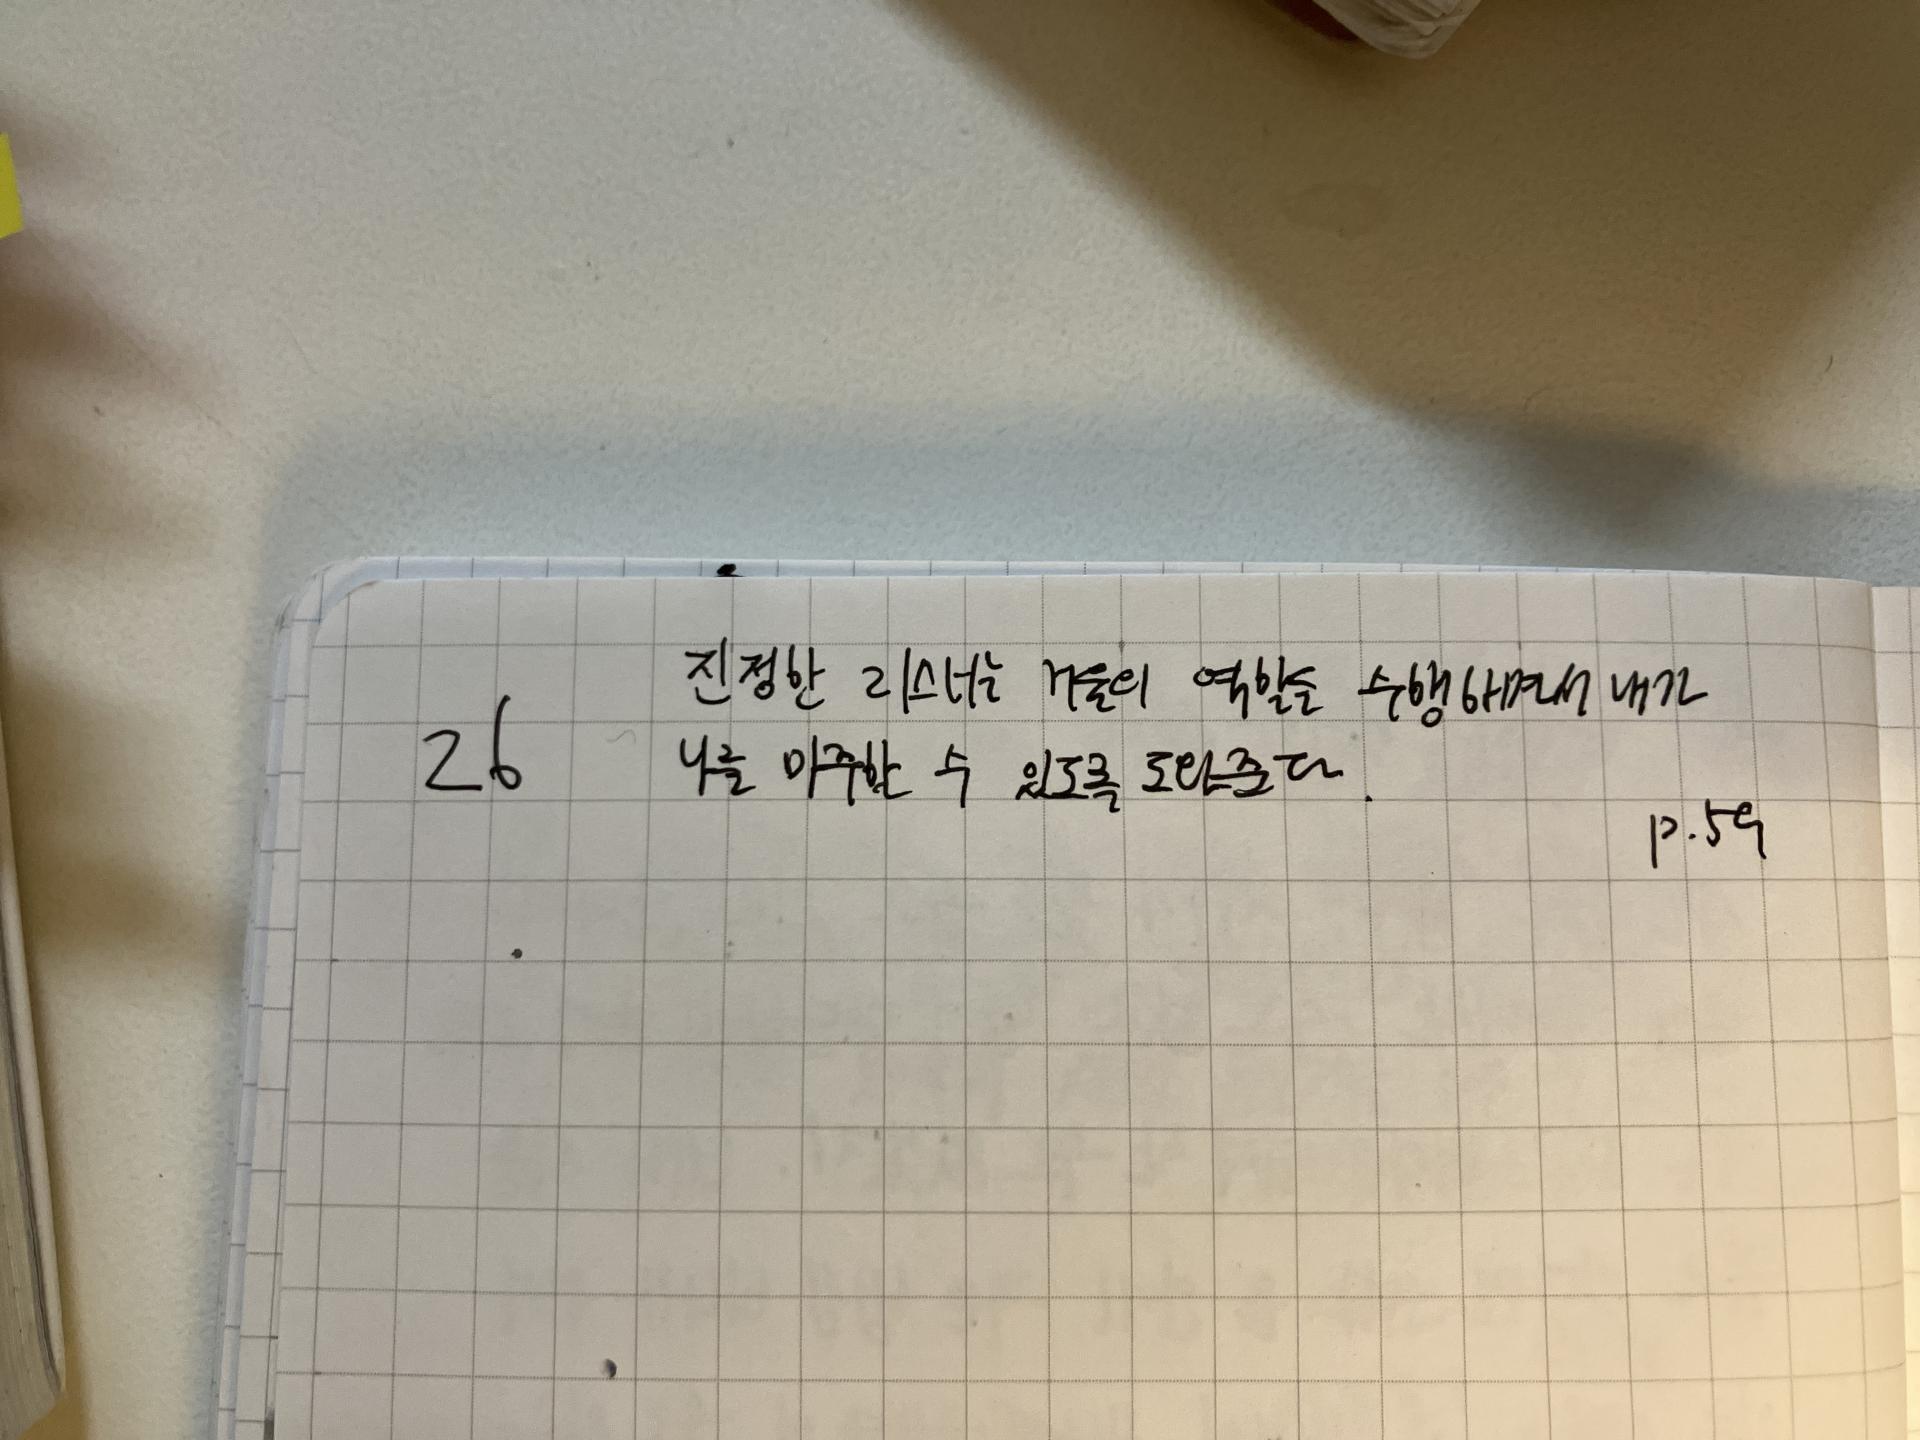 진정한 리스너는 거울의 역할을 수행하면서 내가
26 나를 마주할 수 있도록 도와준다.
p.59